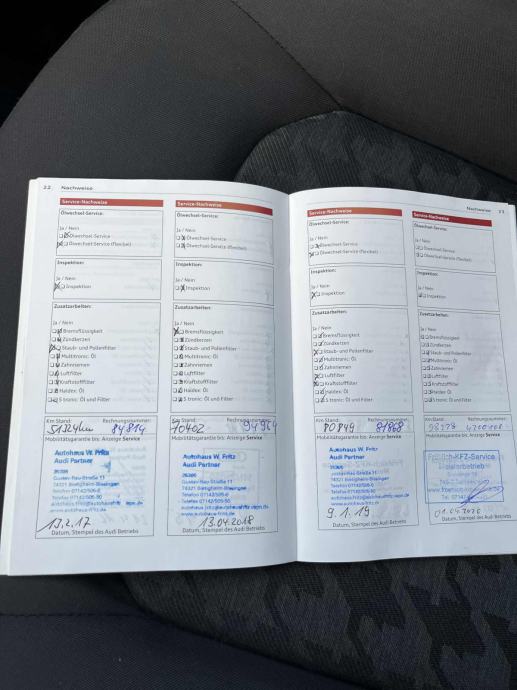 22 Nachweise
Service-Nachweise
Ölwechsel-Service:
Ja / Nein
Ölwechsel-Service
Ölwechsel-Service (flexibel)
Inspektion:
Ja / Nein
Inspektion
Zusatzarbeiten:
Ja / Nein
Bremsflüssigkeit
Zündkerzen
Staub- und Pollenfilter
Multitronic: Öl
Zahnriemen
Luftfilter
Kraftstofffilter
Haldex: Öl
S tronic: Öl und Filter
Km Stand: Rechnungsnummer:
84814
Mobilitätsgarantie bis: Anzeige Service
Autohaus W. Fritz
Audi Partner
Gustav-Rau-Straße 11
74321 Bietigheim-Bissingen
Telefon 07142/506-0
Telefax 07142/506-50
www.autohaus-fritz.de
13.2.17
Datum, Stempel des Audi Betriebs
Service-Nachweise
Ölwechsel-Service:
Ja / Nein
Ölwechsel-Service
Ölwechsel-Service (flexibel)
Inspektion:
Ja / Nein
Inspektion
Zusatzarbeiten:
Ja / Nein
Bremsflüssigkeit
Zündkerzen
Staub- und Pollenfilter
Multitronic: Öl
Zahnriemen
Luftfilter
Kraftstofffilter
Haldex: Öl
S tronic: Öl und Filter
Km Stand: Rechnungsnummer:
70402
Mobilitätsgarantie bis: Anzeige Service
Autohaus W. Fritz
Audi Partner
Gustav-Rau-Straße 11
74321 Bietigheim-Bissingen
Telefon 07142/506-0
Telefax 07142/506-50
www.autohaus-fritz.de
13.04.2018
Datum, Stempel des Audi Betriebs
Nachweise 23
Service-Nachweise
Ölwechsel-Service:
Ja / Nein
Ölwechsel-Service
Ölwechsel-Service (flexibel)
Inspektion:
Ja / Nein
Inspektion
Zusatzarbeiten:
Ja / Nein
Bremsflüssigkeit
Zündkerzen
Staub- und Pollenfilter
Multitronic: Öl
Zahnriemen
Luftfilter
Kraftstofffilter
Haldex: Öl
S tronic: Öl und Filter
Km Stand: Rechnungsnummer:
80849
Mobilitätsgarantie bis: Anzeige Service
Autohaus W. Fritz
Audi Partner
Gustav-Rau-Straße 11
74321 Bietigheim-Bissingen
Telefon 07142/506-0
Telefax 07142/506-50
www.autohaus-fritz.de
9.1.19
Datum, Stempel des Audi Betriebs
Service-Nachweise
Ölwechsel-Service:
Ja / Nein
Ölwechsel-Service
Ölwechsel-Service (flexibel)
Inspektion:
Ja / Nein
Inspektion
Zusatzarbeiten:
Ja / Nein
Bremsflüssigkeit
Zündkerzen
Staub- und Pollenfilter
Multitronic: Öl
Zahnriemen
Luftfilter
Kraftstofffilter
Haldex: Öl
S tronic: Öl und Filter
Km Stand: Rechnungsnummer:
98278
Mobilitätsgarantie bis: Anzeige Service
Fröhlich-KFZ-Service
Meisterbetrieb
01.04.2020
Datum, Stempel des Audi Betriebs